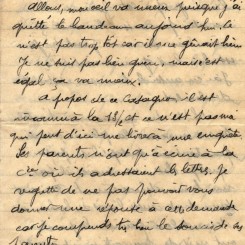 Allons, mon œil va mieux puisque j'ai
quitté le bandeau aujourd'hui, ce
n'est pas trop tôt car il me gênait bien
Je ne suis pas bien guéri, mais c'est
égal ça va mieux.
A propos de ce Castagné, il est
inconnu à la 18/ et ce n'est pas moi
qui peut d'ici me livrer à une enquête.
Les parents n'ont qu'à écrire à la
Cie où ils adressaient les lettres. Je
regrette de ne pas pouvoir vous
donner une réponse à cette demande
car je comprends très bien le souci de ces
parents